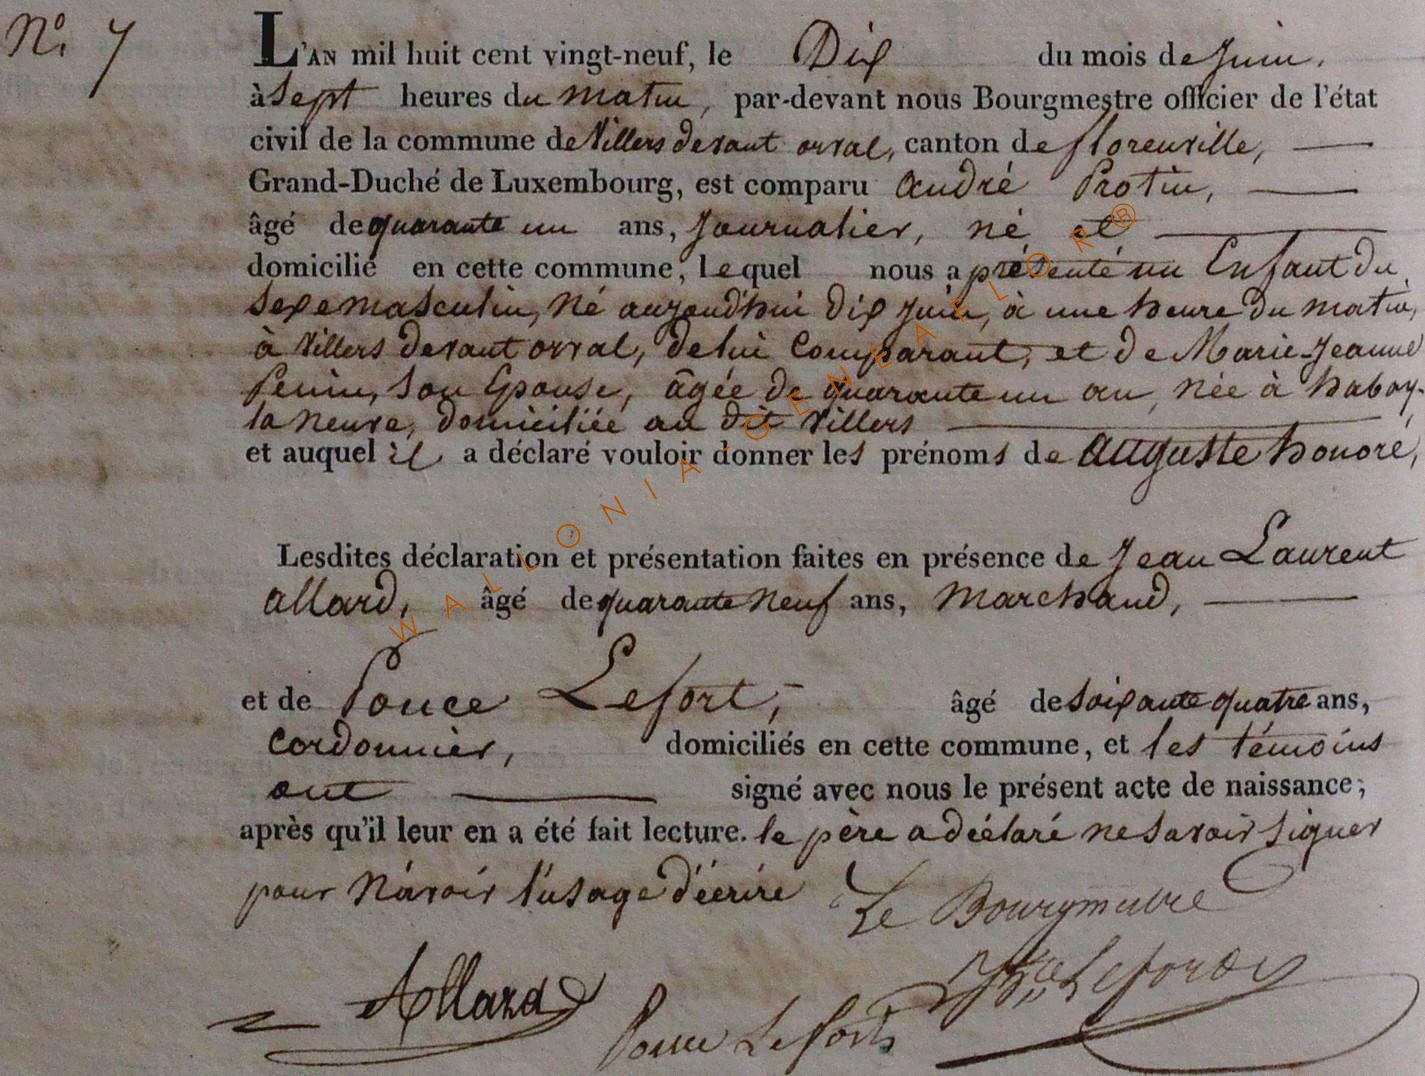 N° 7
L'AN mil huit cent vingt-neuf, le Dix du mois de juin,
à sept heures du matin, par-devant nous Bourgmestre officier de l'état
civil de la commune de Villers devant orval, canton de florenville,
Grand-Duché de Luxembourg, est comparu andré Protin,
âgé de quarante un ans, journalier, né et
domicilié en cette commune, lequel nous a présenté un Enfant du
sexe masculin, né aujourd'hui dix juin, à une heure du matin,
à Villers devant orval, de lui Comparant, et de Marie-Jeanne
Penin, son Epouse, âgée de quarante un an, née à habay-
la neuve, domiciliée au dit Villers
et auquel il a déclaré vouloir donner les prénoms de auguste honoré,
Lesdites déclaration et présentation faites en présence de Jean Laurent
allard, âgé de quarante neuf ans, marchand,
et de Ponce Lefort, âgé de soixante quatre ans,
cordonnier, domiciliés en cette commune, et les témoins
ont signé avec nous le présent acte de naissance;
après qu'il leur en a été fait lecture. le père a déclaré ne savoir signer
pour n'avoir l'usage d'écrire Le Bourgmestre
Allard Ponce Lefort
WALLONIA GENEALOR®